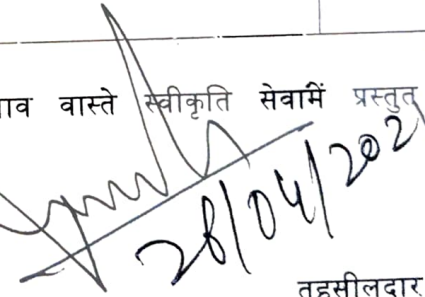 ाव वास्ते स्वीकृति सेवामें प्रस्तुत
28/04/202
तहसीलदार